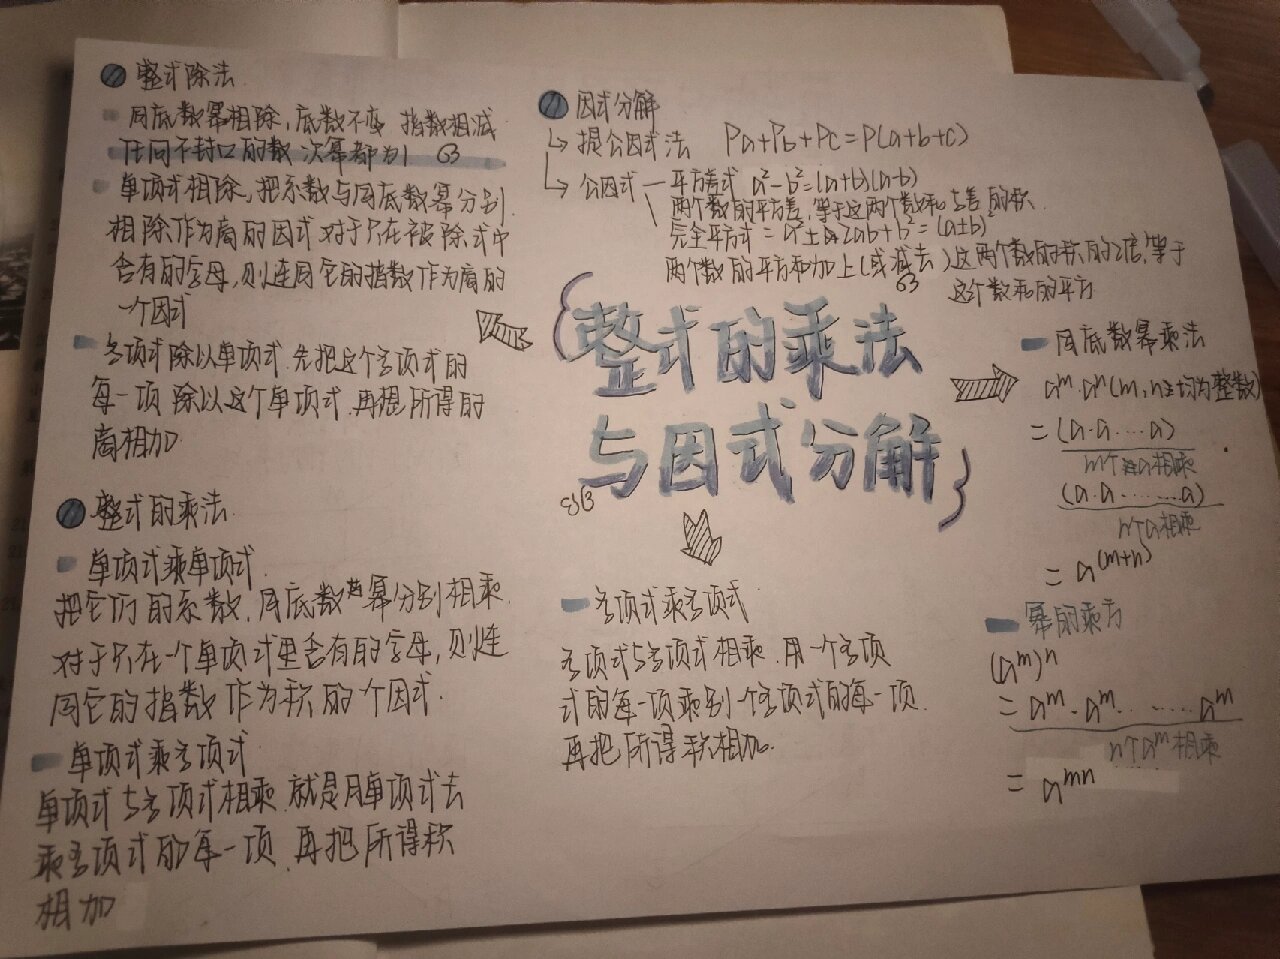 整式除法
同底数幂相除,底数不变 指数相减
任何不封口的数 次幂都为1 63
单项式相除,把系数与同底数幂分别
相除作为商的因式对于只在被除式中
含有的字母,则连同它的指数作为商的
一个因式
多项式除以单项式.先把这个多项式的
每一项 除以这个单项式,再把所得的
商相加
整式的乘法
单项式乘单项式
把它们的系数,同底数 幂分别相乘.
对于只在一个单项式里含有的字母,则连
同它的指数 作为积的一个因式.
单项式乘多项式
单项式与多项式相乘.就是用单项式去
乘多项式的每一项,再把所得积
相加
因式分解
提公因式法 Pa+Pb+Pc=P(a+b+c)
公因式 平方差式 a²-b²=(a+b)(a-b)
两个数的平方差,等于这两个数和与差的积.
完全平方式=a²±2ab+b²=(a±b)²
两个数的平方和加上(或减去)这两个数的积的2倍,等于
63 这个数和的平方
{整式的乘法
与因式分解}
多项式乘多项式
多项式与多项式相乘.用一个多项
式的每一项乘别一个多项式的每一项.
再把所得积相加.
同底数幂乘法
aᵐ·aⁿ(m,n均为整数)
=(a·a····a)
m个a相乘
(a·a·······a)
n个a相乘
=a⁽ᵐ⁺ⁿ⁾
幂的乘方
(aᵐ)ⁿ
=aᵐ·aᵐ·······aᵐ
n个aᵐ相乘
=aᵐⁿ